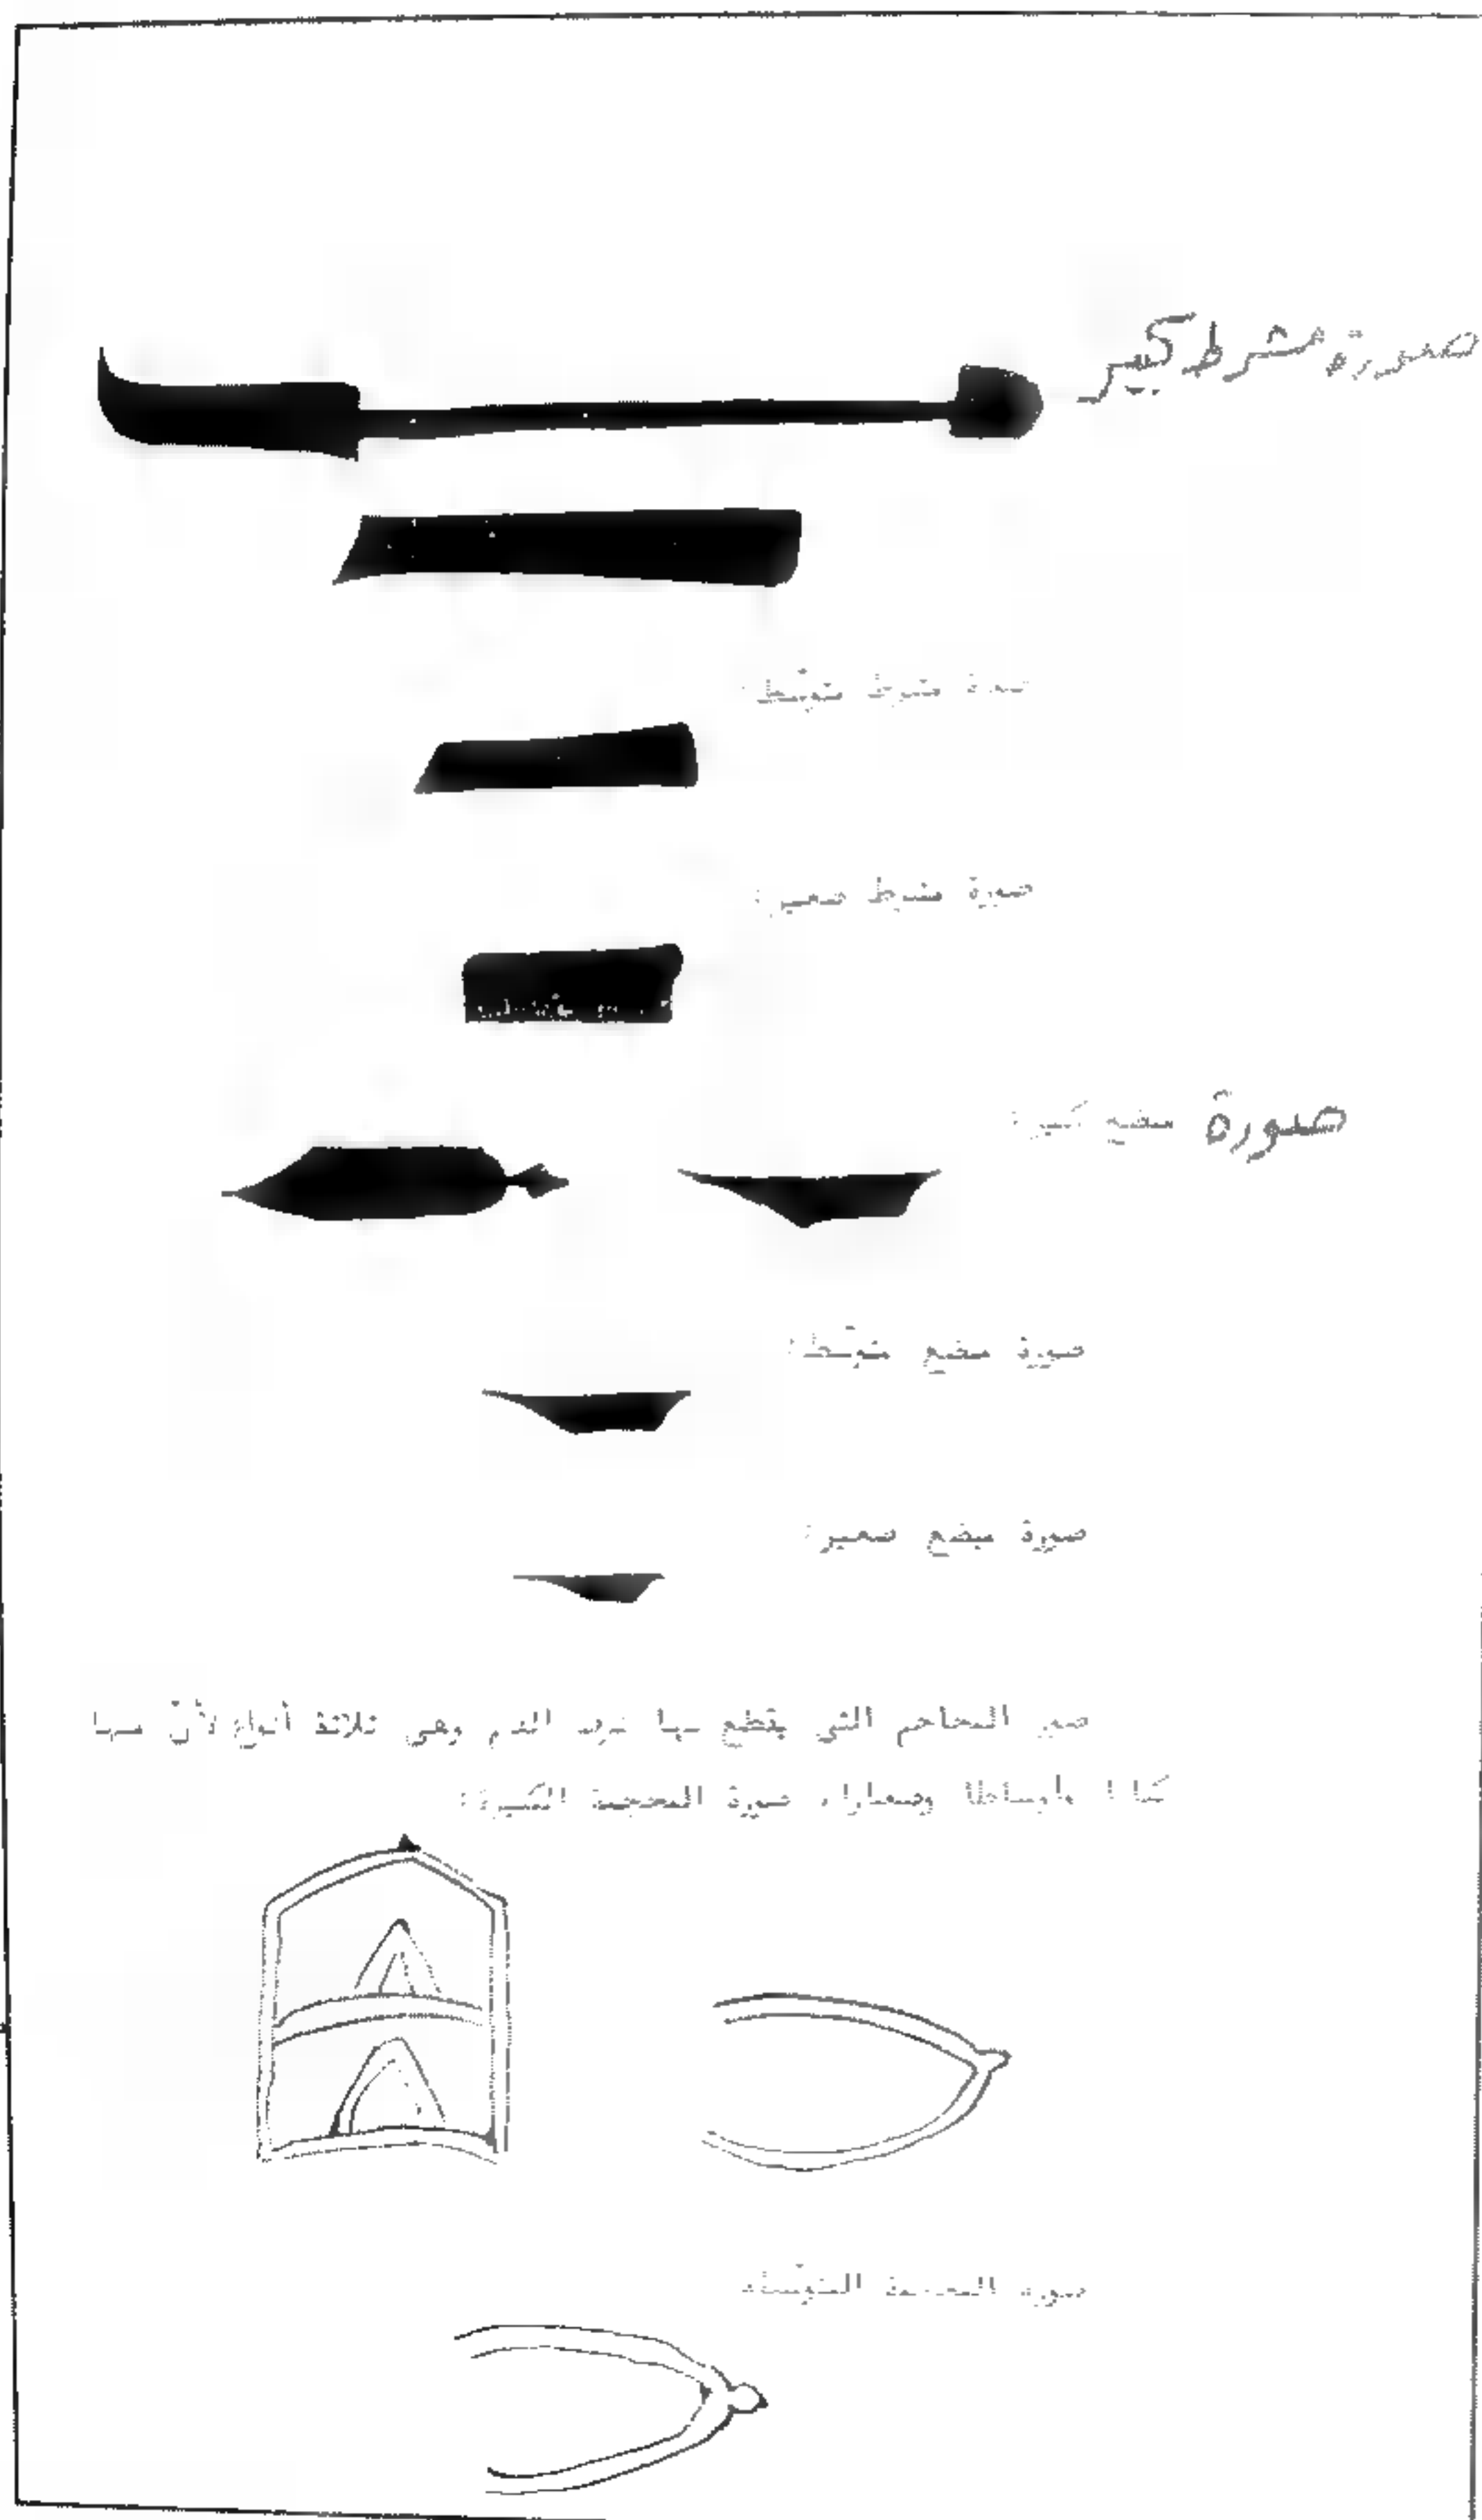 صورة مشرط كبير
صورة مشرط متوسّط:
صورة مشرط صغير:
صورة مبضع كبير:
صورة مبضع متوسّط:
صورة مبضع صغير:
صور المحاجم التي يقطع بها نزف الدم وهي ثلاثة أنواع لأنّ منها
كبارا وأوساطا وصغارا، صورة المحجمة الكبيرة:
صورة المحجمة المتوسّطة: